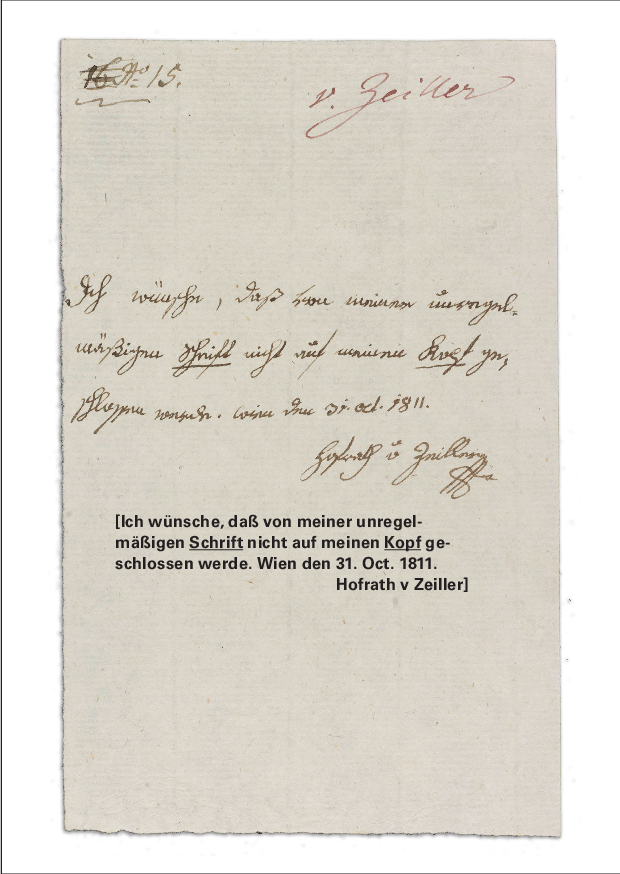 16 No 15.
v. Zeiller
Ich wünsche, daß von meiner unregel-
mäßigen Schrift nicht auf meinen Kopf ge-
schlossen werde. Wien den 31. Oct. 1811.
Hofrath v Zeiller
[Ich wünsche, daß von meiner unregel-
mäßigen Schrift nicht auf meinen Kopf ge-
schlossen werde. Wien den 31. Oct. 1811.
Hofrath v Zeiller]